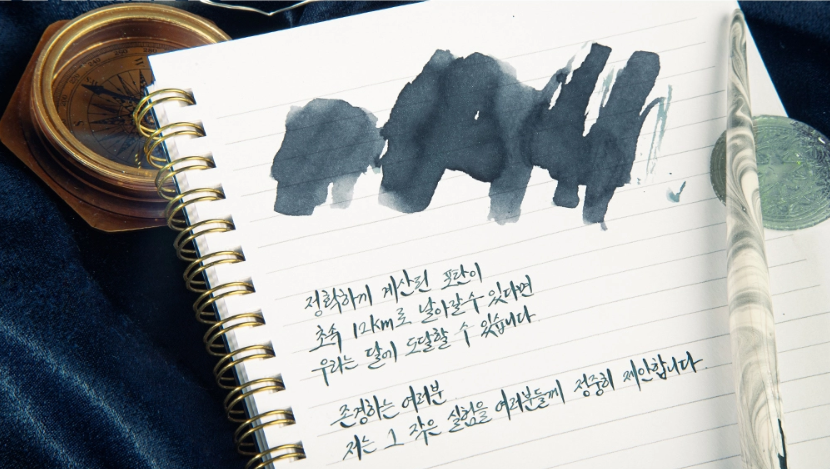 정확하게 계산된 포탄이
초속 12km로 날아갈 수 있다면
우리는 달에 도달할 수 있습니다
존경하는 여러분
저는 그 작은 실험을 여러분들께 정중히 제안합니다.